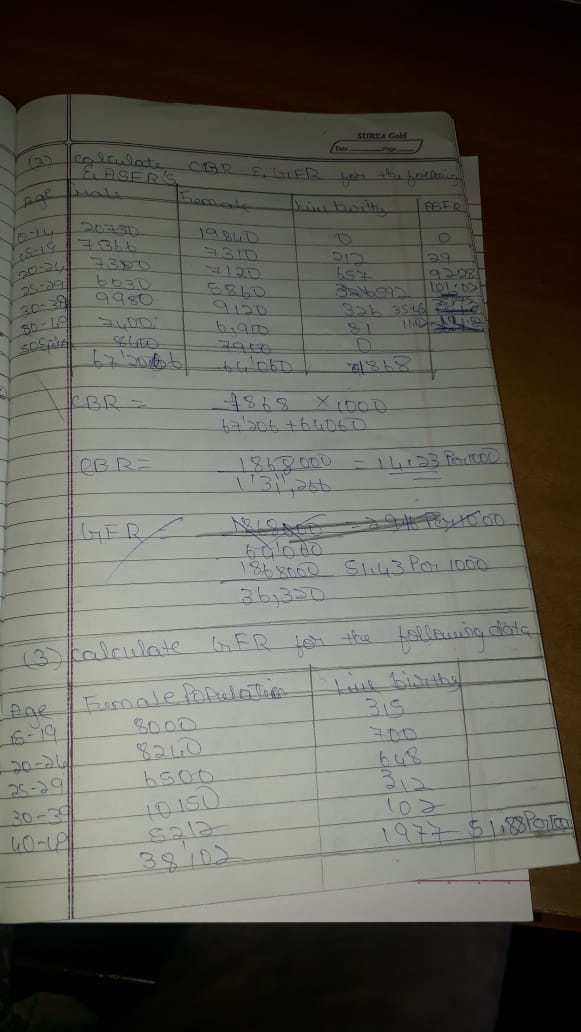 SURYA Gold
Date Page
(2) calculate CBR & GFR for the following
& ASFR's
Age Male Female Live birth ASFR
0-14 20730 19840 0 0
15-19 7366 7310 212 29
20-24 7300 7120 657 92.28
25-29 6030 5860 592 101.02
30-39 9980 9120 326
7400 6,910 81
8400 7900 0
67'206 64'060 1868
CBR = 1868 × 1000
67'206 + 64060
CBR = 1868000 = 14.23 Per 1000
1'31',266
GFR =
64'060
1868000 51.43 Per 1000
36,320
(3) calculate GFR for the following data
Age Female Population Live births
15-19 8000 315
20-24 8240 700
25-29 6500 648
30-39 10150 312
40-49 5212 102
38'102 1977 51.88 Per 1000